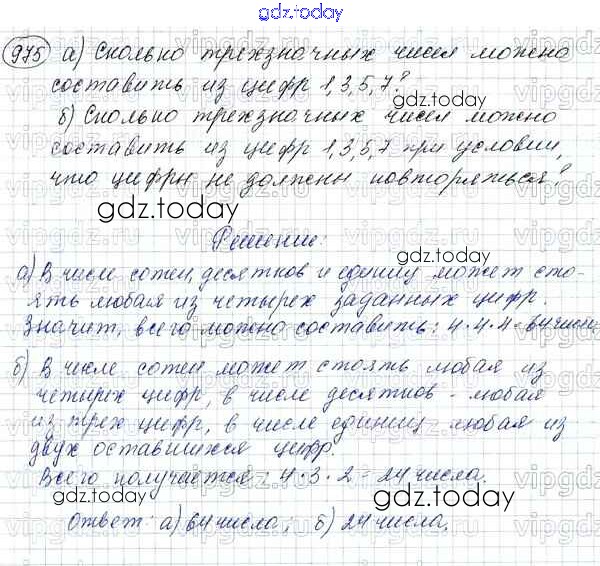 gdz.today
975 а) Сколько трехзначных чисел можно
составить из цифр 1,3,5,7?
gdz.today
б) Сколько трехзначных чисел можно
составить из цифр 1,3,5,7 при условии,
что цифры не должны повторяться?
gdz.today
Решение:
gdz.today
а) В числе сотен, десятков и единиц может сто-
ять любая из четырех заданных цифр.
Значит, всего можно составить: 4·4·4=64 числа
б) В числе сотен может стоять любая из
четырех цифр, в числе десятков - любая
из трех цифр, в числе единиц любая из
двух оставшихся цифр.
Всего получается: 4·3·2=24 числа.
gdz.today
Ответ: а) 64 числа; б) 24 числа.